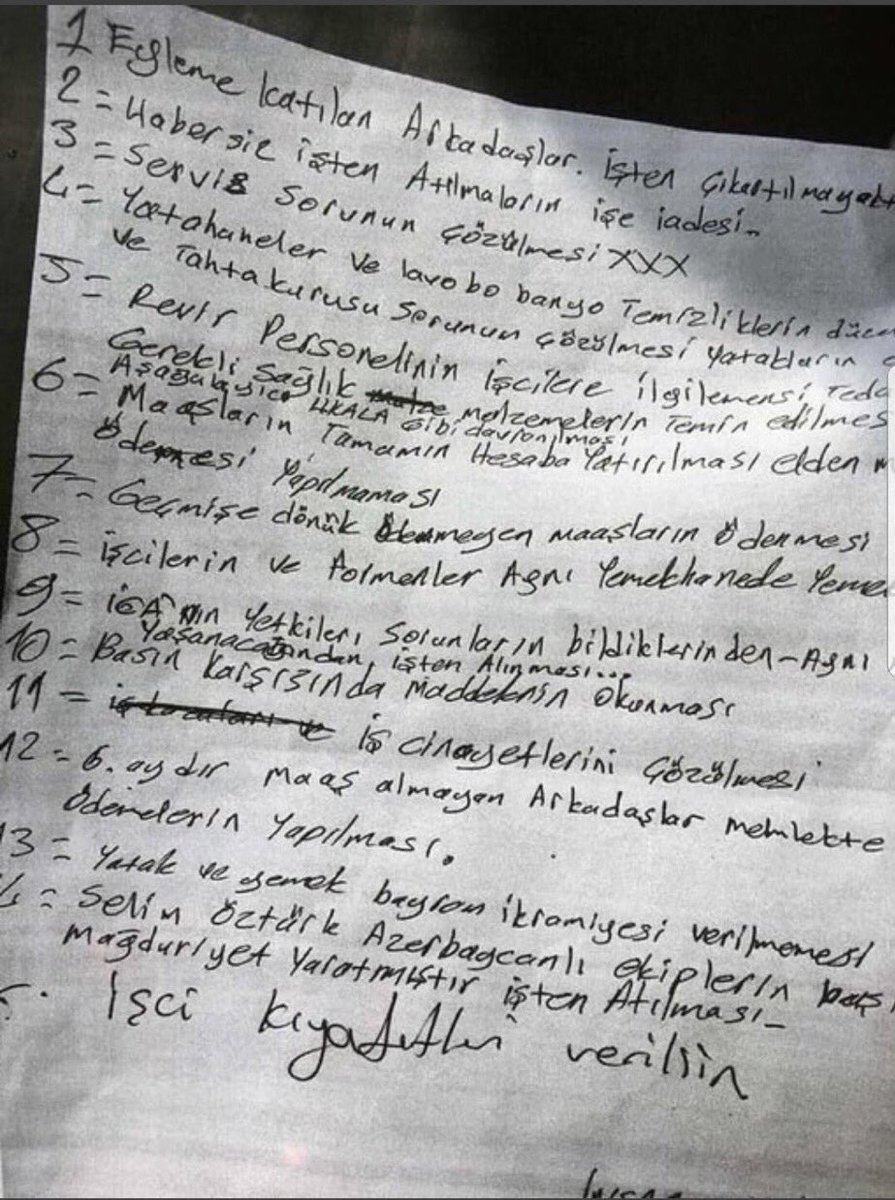 1 Eyleme katılan Arkadaşlar. İşten Çıkartılmayak
2 = Habersiz işten Atılmaların işe iadesi.
3 = Servis Sorunun Çözülmesi XXX
4 = Yatahaneler ve lavobo banyo Temizliklerin
ve Tahtakurusu Sorunun Çözülmesi yatakların
5 = Revir Personelinin İşcilere ilgilemensi
Gerekli Sağlık malzemelerin Temin edilmes
Aşağulayıcı UKALA Gibi davranılması
6 = Maaşların Tamamın Hesaba Yatırılması elden
ödemesi Yapılmaması
7 = Geçmişe dönük ödenmeyen maaşların Ödenmesi
8 = işcilerin ve Formenler Aynı Yemekhanede Yeme
9 = iGA'nın Yetkileri Sorunların bildiklerinden - Aynı
Yaşanacağından işten Alınması...
10 = Basın Karşısında maddelenin Okunması
11 = İş Cinayetlerini Çözülmesi
12 = 6. aydır maaş almayan Arkadaşlar memlekte
Ödemelerin Yapılması.
13 = Yatak ve yemek bayram ikramiyesi verilmemesi
Selim Öztürk Azerbaycanlı ekiplerin
mağduriyet Yaratmıştır işten Atılması-
İşci kıyafetleri verilsin